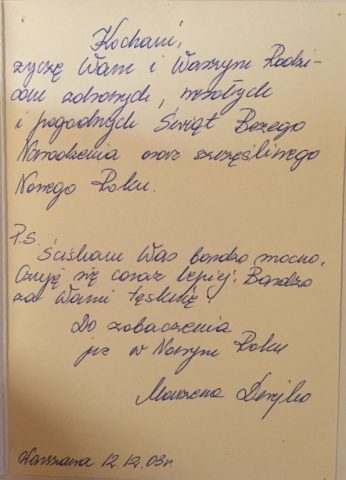 Kochani,
życzę Wam i Waszym Rodzi-
com zdrowych, wesołych
i pogodnych Świąt Bożego
Narodzenia oraz szczęśliwego
Nowego Roku.
P.S.
Ściskam Was bardzo mocno.
Czuję się coraz lepiej. Bardzo
za Wami tęsknię!
Do zobaczenia
już w Nowym Roku
Marzena
Warszawa 12.12.03r.